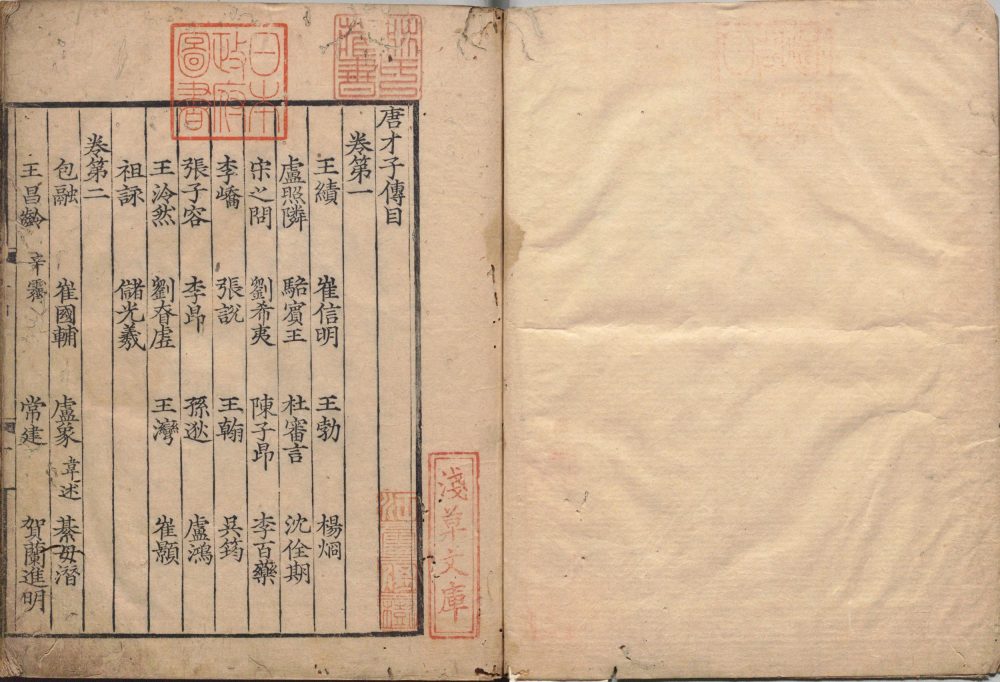 唐才子傳目
卷第一
王績 崔信明 王勃 楊烱
盧照隣 駱賔王 杜審言 沈佺期
宋之問 劉希夷 陳子昂 李百藥
李嶠 張說 王翰 吳筠
張子容 李昂 孫逖 盧鴻
王泠然 劉眘虛 王灣 崔顥
祖詠 儲光羲
卷第二
包融 崔國輔 盧象 韋述 綦毋潛
王昌齡 辛霽 常建 賀蘭進明
日本
政府
圖書
淺草文庫